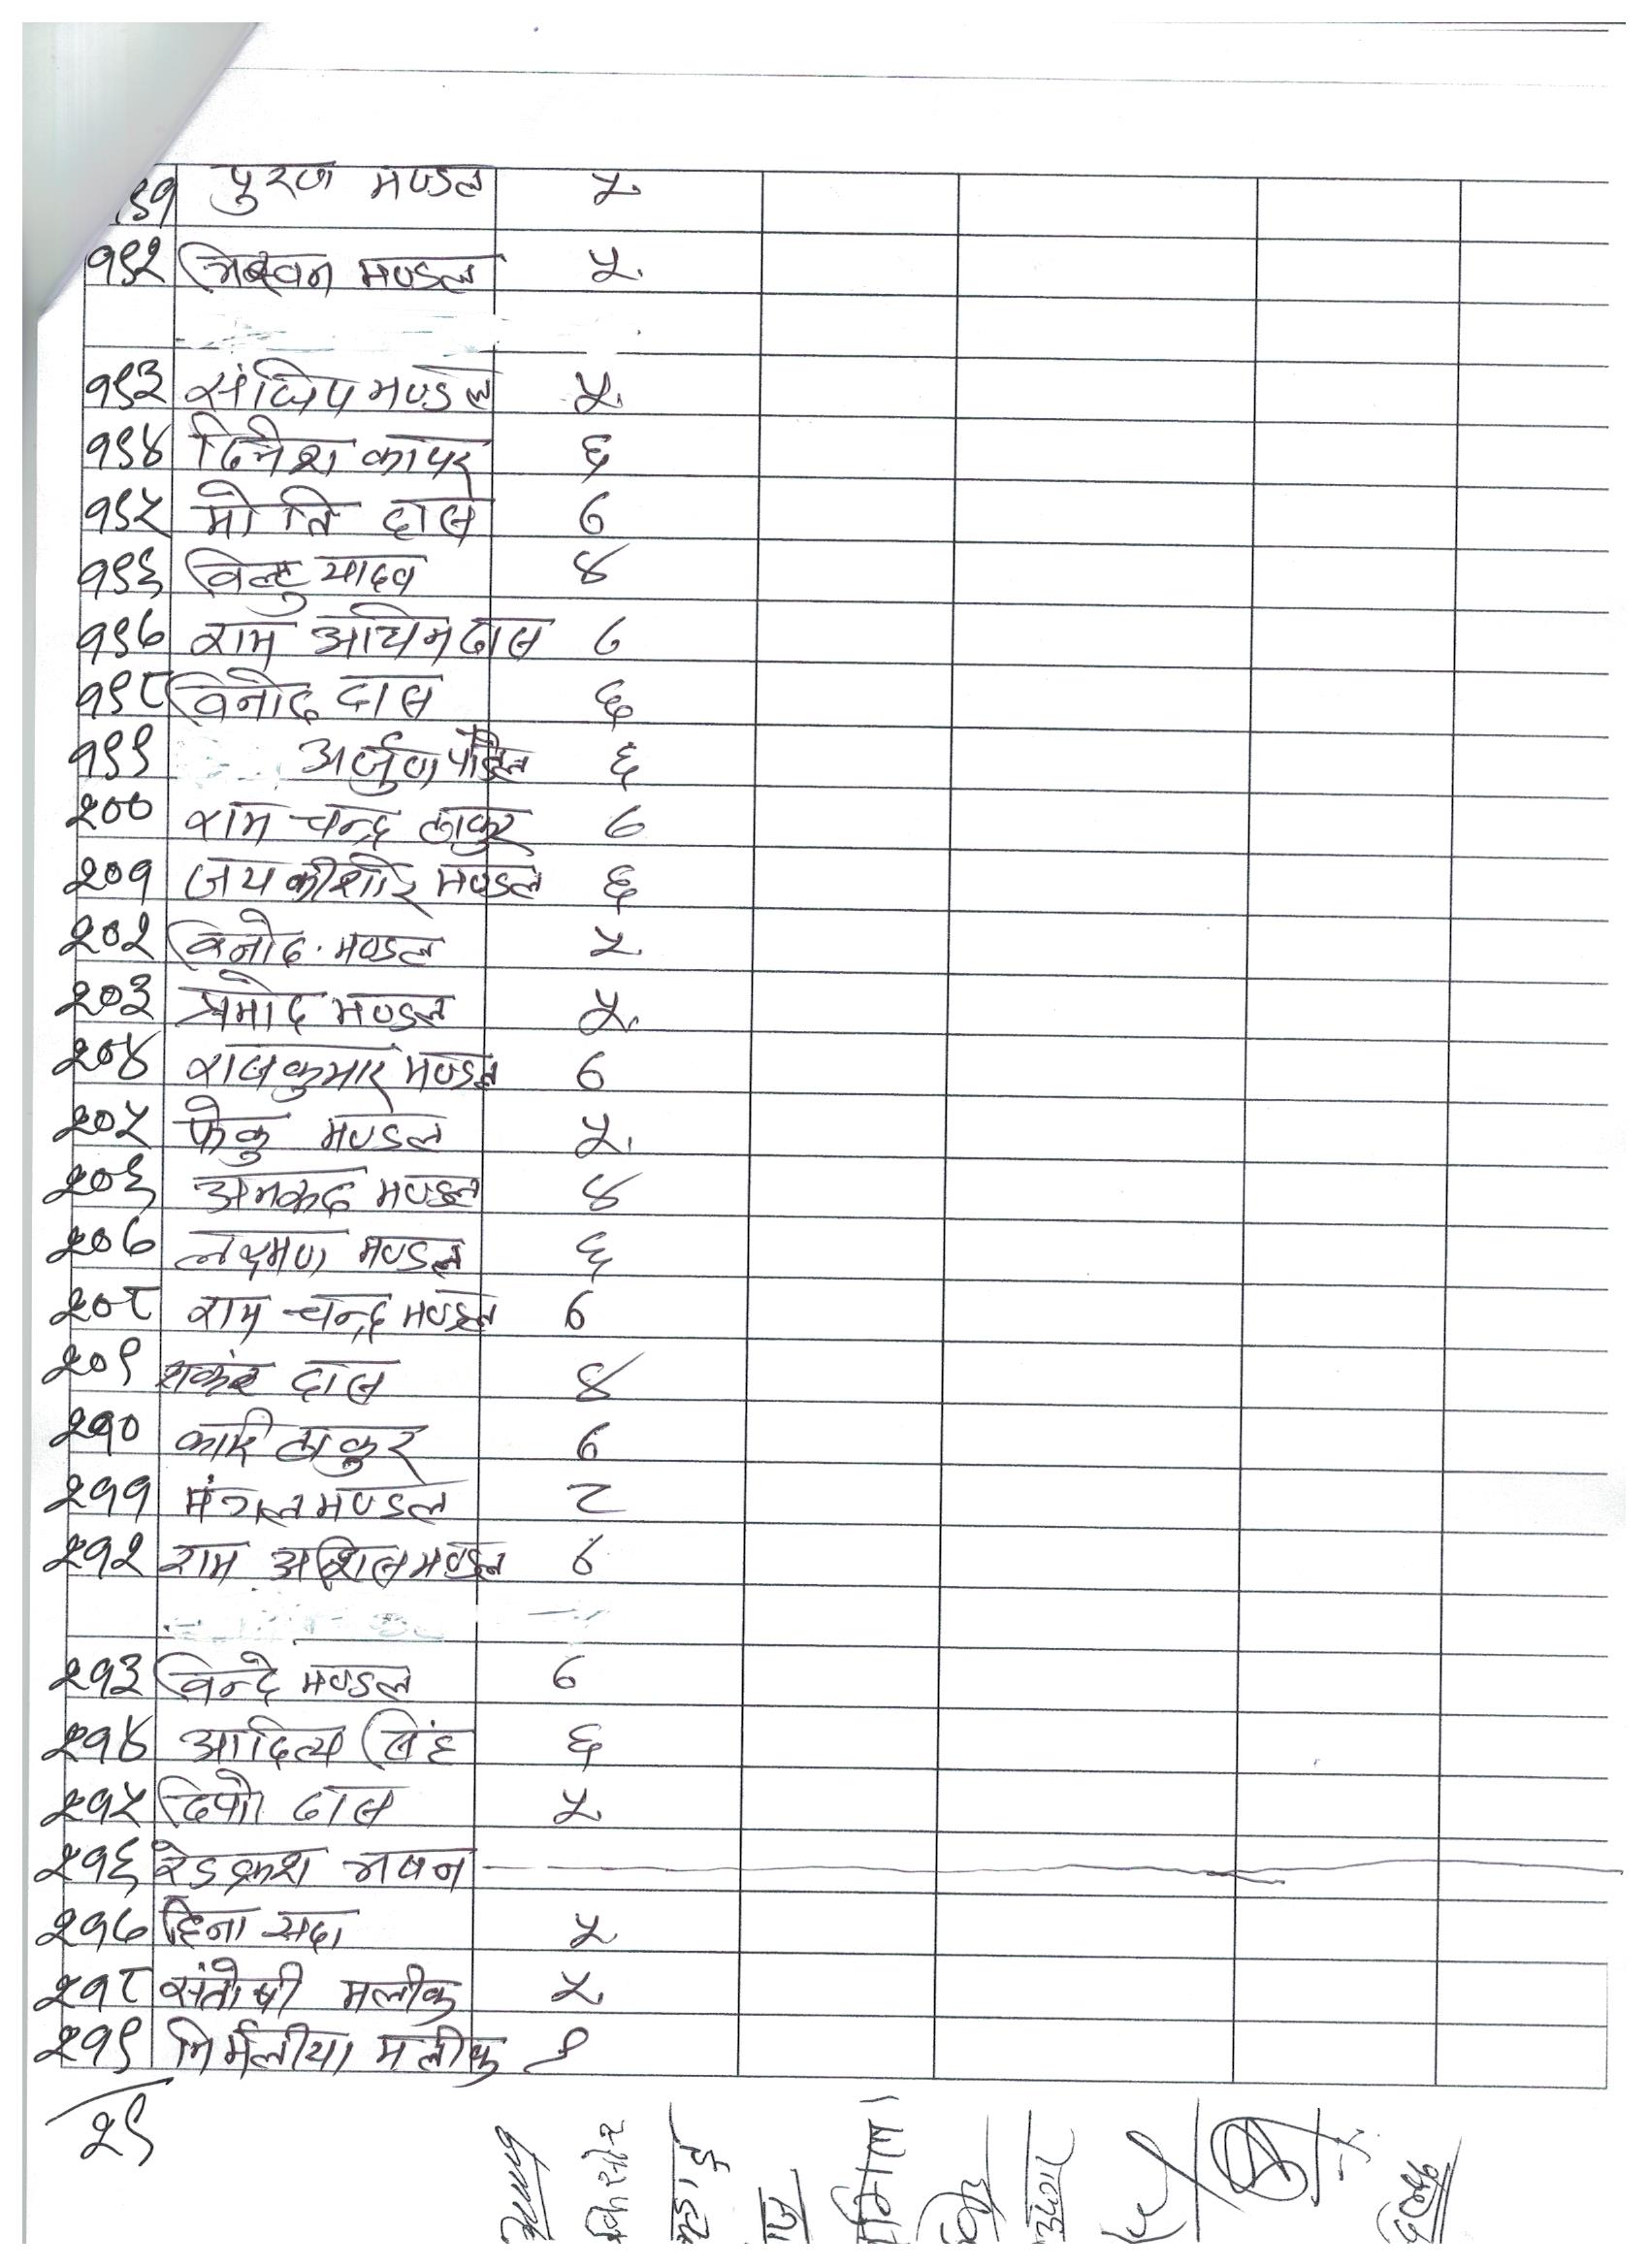 १९१ पुरण मण्डल ५
१९२ मण्डल ५
१९३ संघिप मण्डल ५
१९४ दिनेश कापर ६
१९५ मोति दास ७
१९६ विल्टु यादव ४
१९७ राम दास ७
१९८ विनोद दास ६
१९९ अर्जुण पंडित ६
२०० राम चन्द्र ठाकुर ७
२०१ जय कीशोर मण्डल ६
२०२ विनोद मण्डल ५
२०३ प्रमोद मण्डल ५
२०४ राजकुमार मण्डल ७
२०५ फेकु मण्डल ५
२०६ मण्डल ४
२०७ लक्ष्मण मण्डल ६
२०८ राम चन्द्र मण्डल ७
२०९ शकंर दास ४
२१० कारि ठाकुर ७
२११ मंगल मण्डल ८
२१२ राम मण्डल ७
२१३ विन्दे मण्डल ७
२१४ आदित्य सिंह ६
२१५ दिपो दास ५
२१६ रेडक्रश भवन
२१७ हिना सदा ५
२१८ संतोषी मलीक ५
२१९ निर्मलीया मलीक १
२९